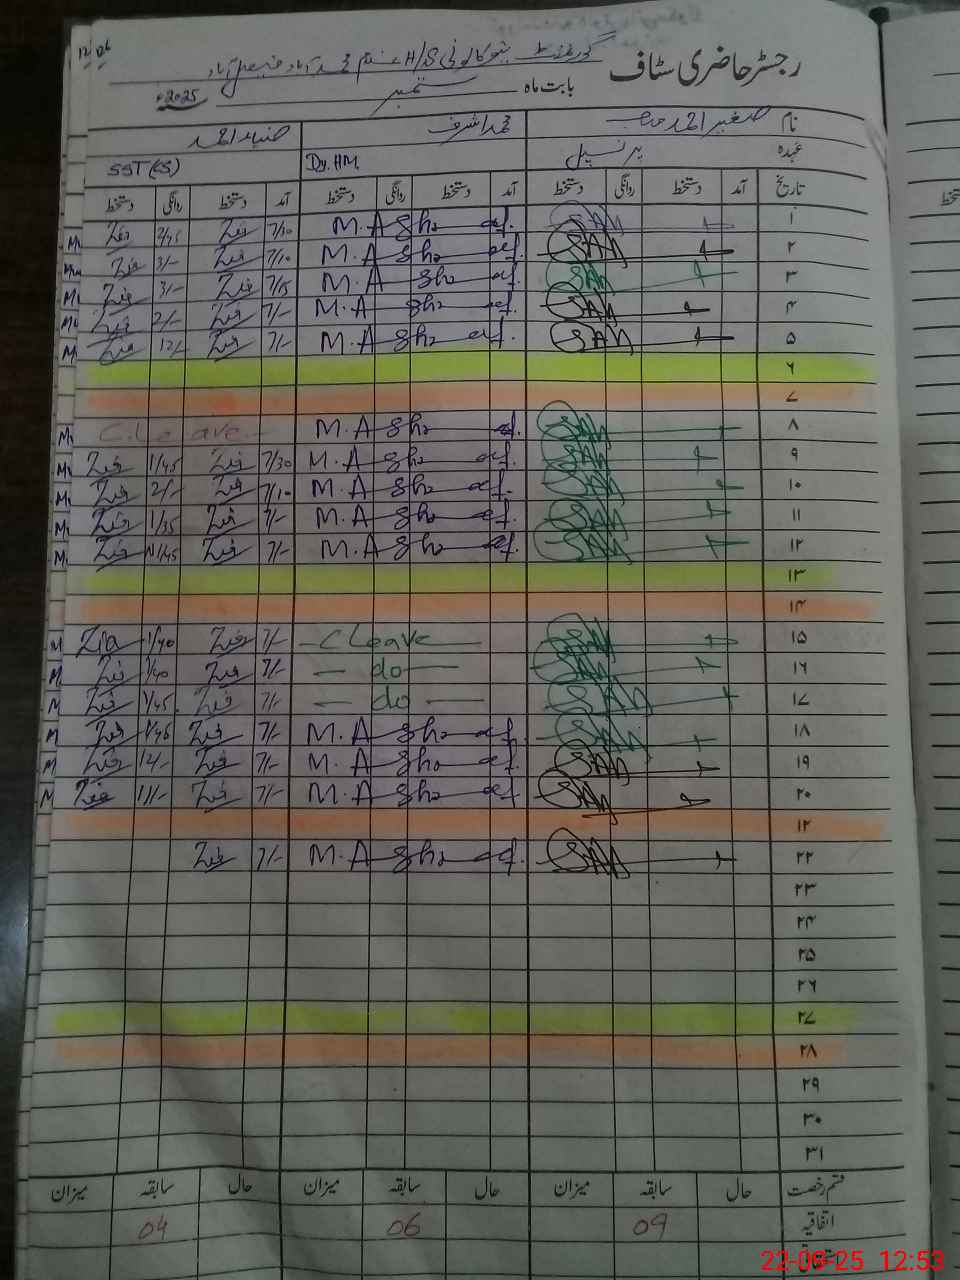 رجسٹر حاضری سٹاف
گورنمنٹ H/S
بابت ماہ ستمبر 2025ء
نام صغیر احمد صاحب محمد اشرف ضیاء احمد
عہدہ پرنسپل Dy.HM. SST(CS)
تاریخ آمد دستخط روانگی دستخط آمد دستخط روانگی دستخط آمد دستخط روانگی دستخط
۱ SAA M.A Shraf. 7/10 Zia 2/45 Zia
۲ SAA M.A Shraf. 7/10 Zia 3/- Zia
۳ SAA M.A Shraf. 7/15 Zia 3/- Zia
۴ SAA M.A Shraf. 7/- Zia 2/- Zia
۵ SAA M.A Shraf. 7/- Zia 12/- Zia
۶
۷
۸ SAA M.A Shraf. C.Leave
۹ SAA M.A Shraf. 7/30 Zia 1/45 Zia
۱۰ SAA M.A Shraf. 7/10 Zia 2/- Zia
۱۱ SAA M.A Shraf. 7/- Zia 1/35 Zia
۱۲ SAA M.A Shraf. 7/- Zia 1/45 Zia
۱۳
۱۴
۱۵ SAA C Leave 7/- Zia 1/40 Zia
۱۶ SAA — do — 7/- Zia 1/40 Zia
۱۷ SAA — do — 7/- Zia 1/45 Zia
۱۸ SAA M.A Shraf. 7/- Zia 1/45 Zia
۱۹ SAA M.A Shraf. 7/- Zia 12/- Zia
۲۰ SAA M.A Shraf 7/- Zia 11/- Zia
۲۱
۲۲ SAA M.A Shraf. 7/- Zia
۲۳
۲۴
۲۵
۲۶
۲۷
۲۸
۲۹
۳۰
۳۱
قسم رخصت حال سابقہ میزان حال سابقہ میزان حال سابقہ میزان
اتفاقیہ 09 06 04
22-09-25 12:53